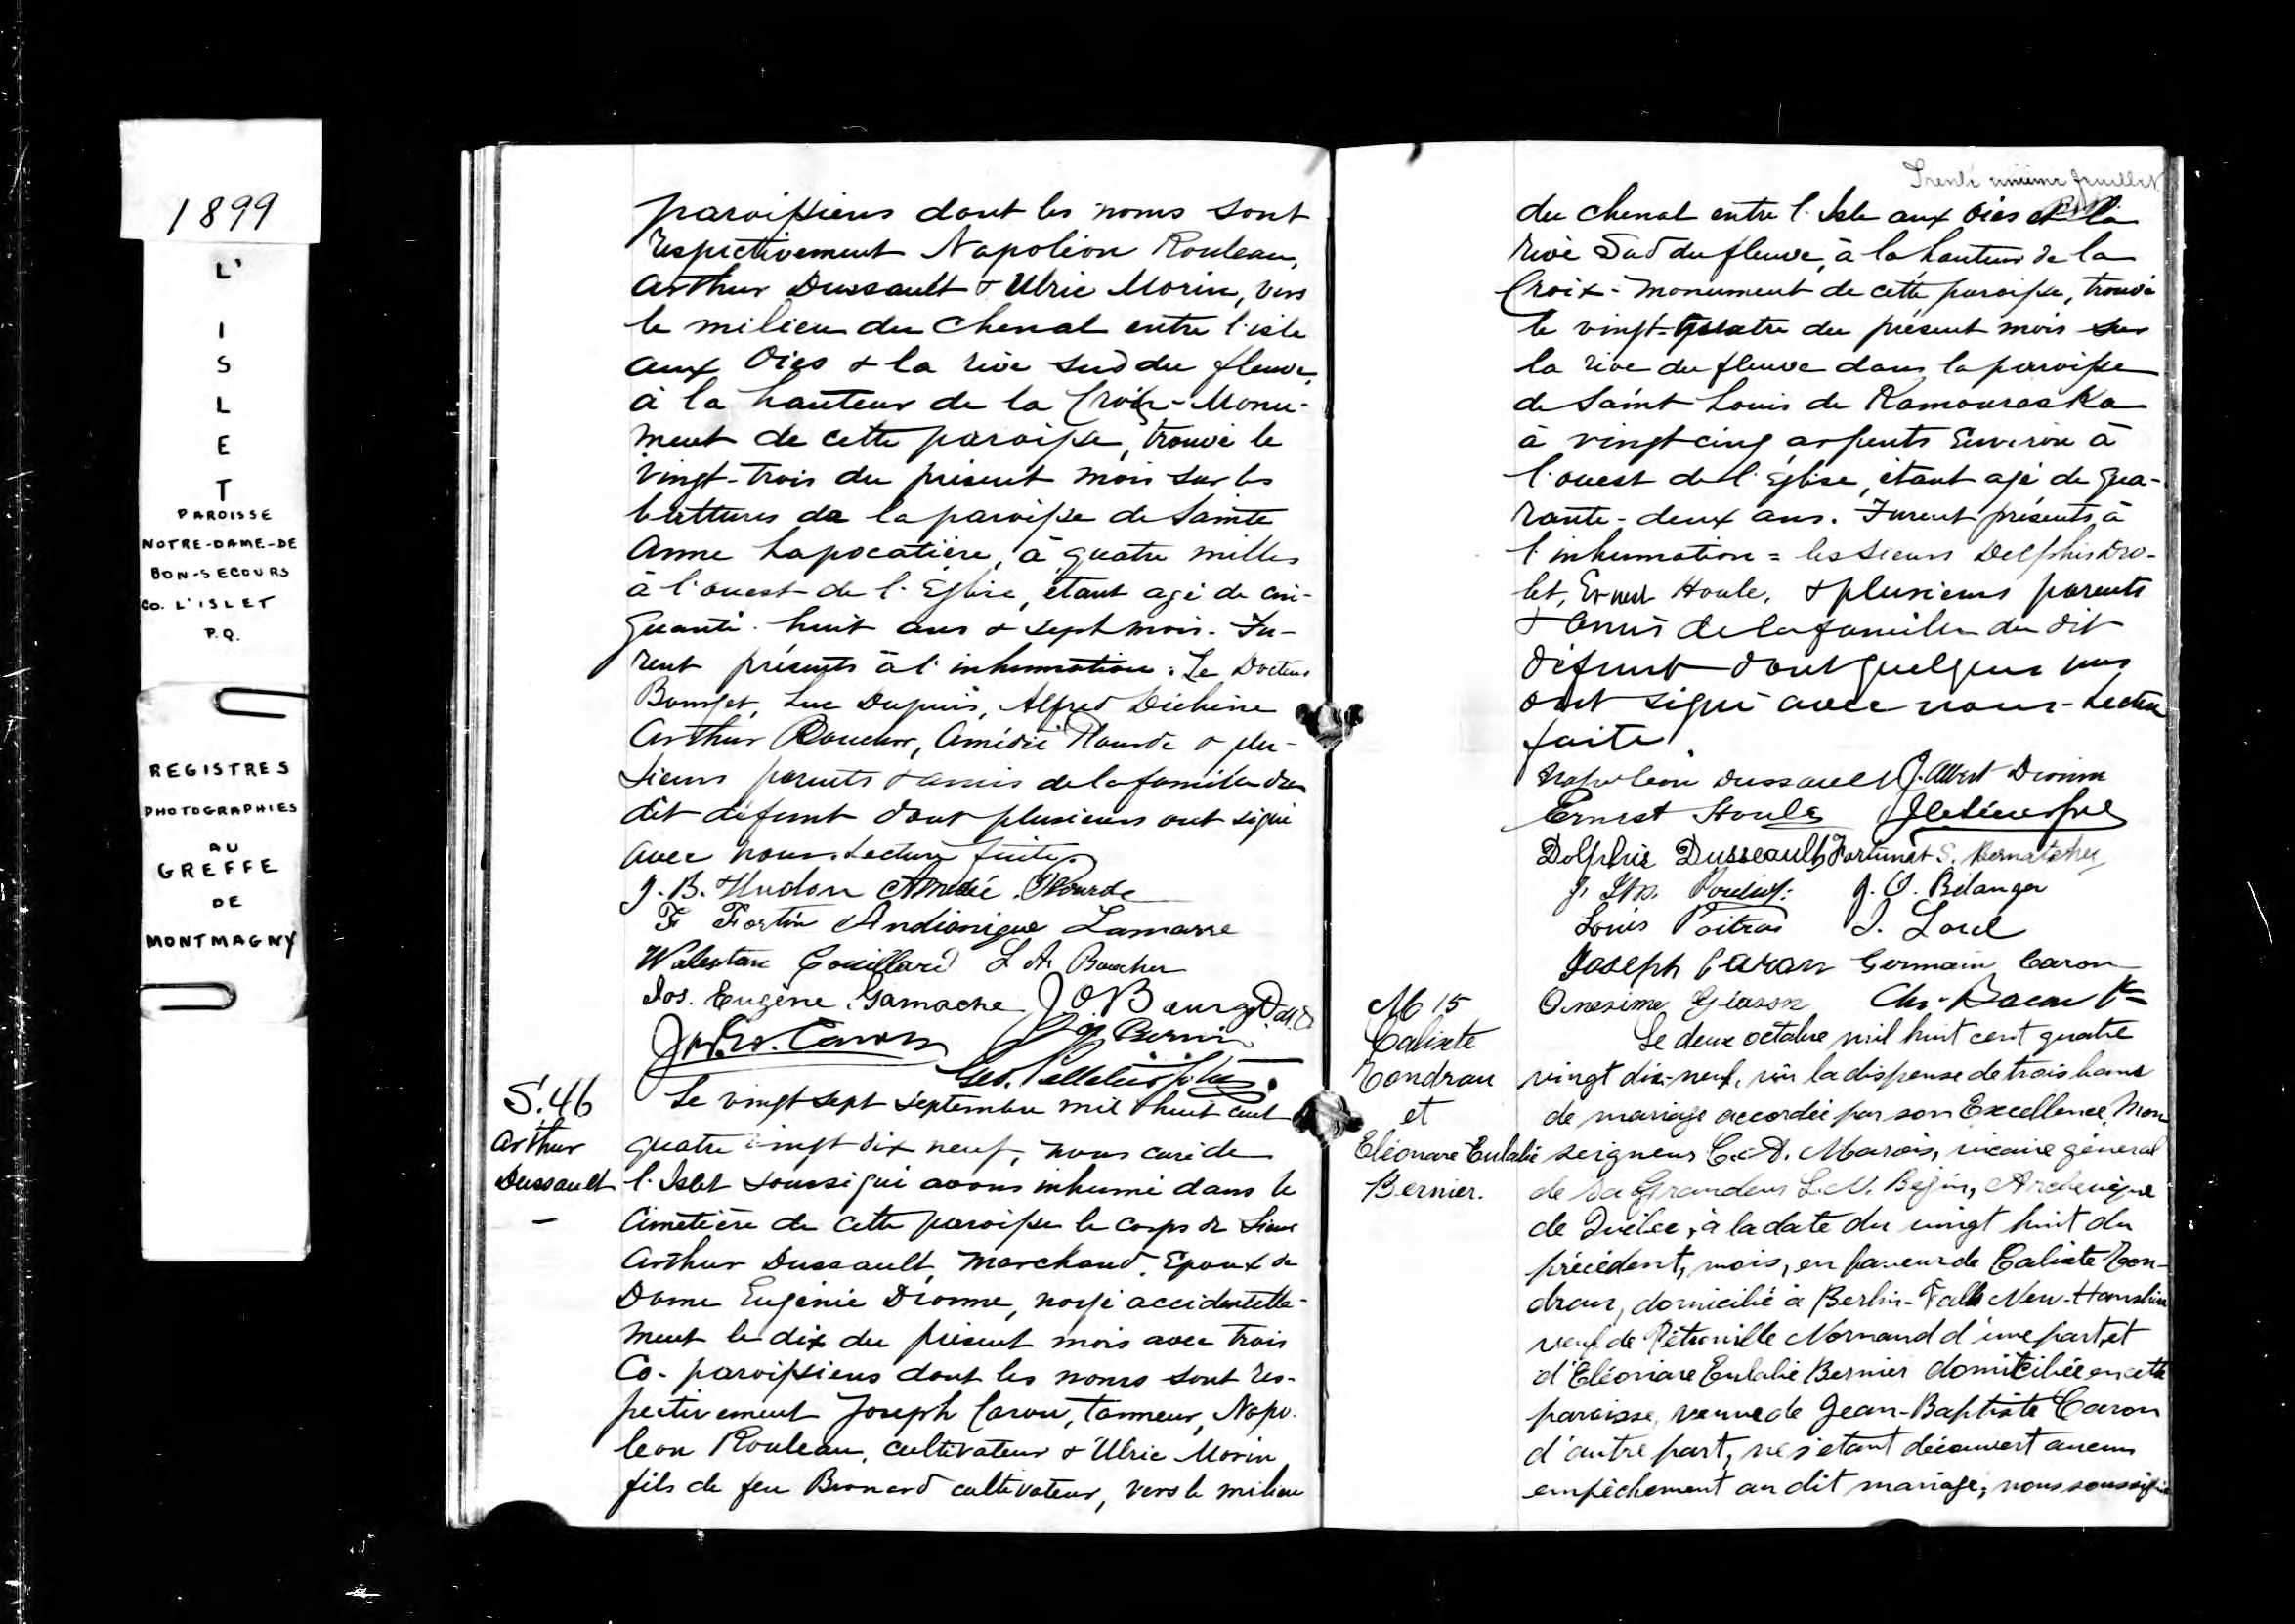 1899
L'
I
S
L
E
T
PAROISSE
NOTRE-DAME-DE
BON-SECOURS
CO. L'ISLET
P.Q.
REGISTRES
PHOTOGRAPHIES
AU
GREFFE
DE
MONTMAGNY
paroissiens dont les noms sont
respectivement Napoléon Rouleau,
Arthur Dussault & Ulric Morin, vers
le milieu du chenal entre l'isle
aux Oies & la rive sud du fleuve,
à la hauteur de la Croix-Monu-
ment de cette paroisse, trouvé le
vingt-trois du présent mois sur les
battures de la paroisse de Sainte
Anne Lapocatière, à quatre milles
à l'ouest de l'Eglise, étant agé de cin-
quante-huit ans & sept mois. Fu-
rent présents à l'inhumation: Le Docteur
Bourget, Luc Dupuis, Alfred Déchêne
Arthur Amédée Plourde & plu-
sieurs parents & amis de la famille du
dit défunt dont plusieurs ont signé
avec nous. Lecture faite.
J. B. Hudon Amédée Plourde
F Fortin Andianique Lamarre
Walestan Couillard L A Boucher
Jos. Eugène Gamache J. O. Bourget D.
Caron Bernier
Geo. Pelletier
S. 46
Arthur
Dussault
—
Le vingt sept septembre mil huit cent
quatre vingt dix neuf, nous curé de
l'Islet soussigné avons inhumé dans le
cimetière de cette paroisse le corps de Sieur
Arthur Dussault, marchand, Epoux de
Dame Eugénie Dionne, noyé accidentelle-
ment le dix du présent mois avec trois
Co-paroissiens dont les noms sont res-
pectivement Joseph Caron, tanneur, Napo-
leon Rouleau, cultivateur & Ulric Morin
fils de feu Bernard cultivateur, vers le milieu
Trente unième feuillet
du chenal entre l'Isle aux Oies et la
rive Sud du fleuve, à la hauteur de la
Croix-Monument de cette paroisse, trouvé
le vingt-quatre du présent mois sur
la rive du fleuve dans la paroisse
de Saint Louis de Kamouraska
à vingt cinq arpents environ à
l'ouest de l'Eglise, étant agé de qua-
rante-deux ans. Furent présents à
l'inhumation = les sieurs Delphis Dro-
let, Ernest Houle, & plusieurs parents
& amis de la famille du dit
défunt dont quelques uns
ont signé avec nous - Lecture
faite
Napoleon Dussault J. Albert Dionne
Ernest Houle
Dolphis Dusseault Fortunat S. Bernatchez
J. O. Bélanger
Louis Poitras J. Lord
Joseph Caron Germain Caron
Onesime Giasson Chs. Bacon Ptre
M 15
Calixte
Condrau
et
Eléonare Eulalie
Bernier.
Le deux octobre mil huit cent quatre
vingt dix-neuf, vu la dispense de trois bans
de mariage accordée par son Excellence Mon
seigneur C. A. Marois, vicaire général
de Sa Grandeur L. N. Bégin, Archevêque
de Québec, à la date du vingt huit du
précédent, mois, en faveur de Calixte Con-
drau, domicilié à Berlin-Falls New-Hamshire
veuf de Pétronille Normand d'une part, et
d'Eléonare Eulalie Bernier domiciliée en cette
paroisse, veuve de Jean-Baptiste Caron
d'autre part, ne s'etant découvert aucun
empêchement au dit mariage, nous soussigné